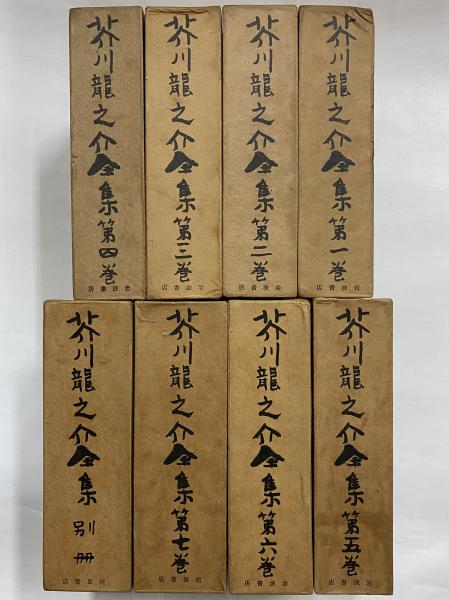 芥川龍之介全集第一巻
岩波書店
芥川龍之介全集第二巻
岩波書店
芥川龍之介全集第三巻
岩波書店
芥川龍之介全集第四巻
岩波書店
芥川龍之介全集第五巻
岩波書店
芥川龍之介全集第六巻
岩波書店
芥川龍之介全集第七巻
岩波書店
芥川龍之介全集別冊
岩波書店